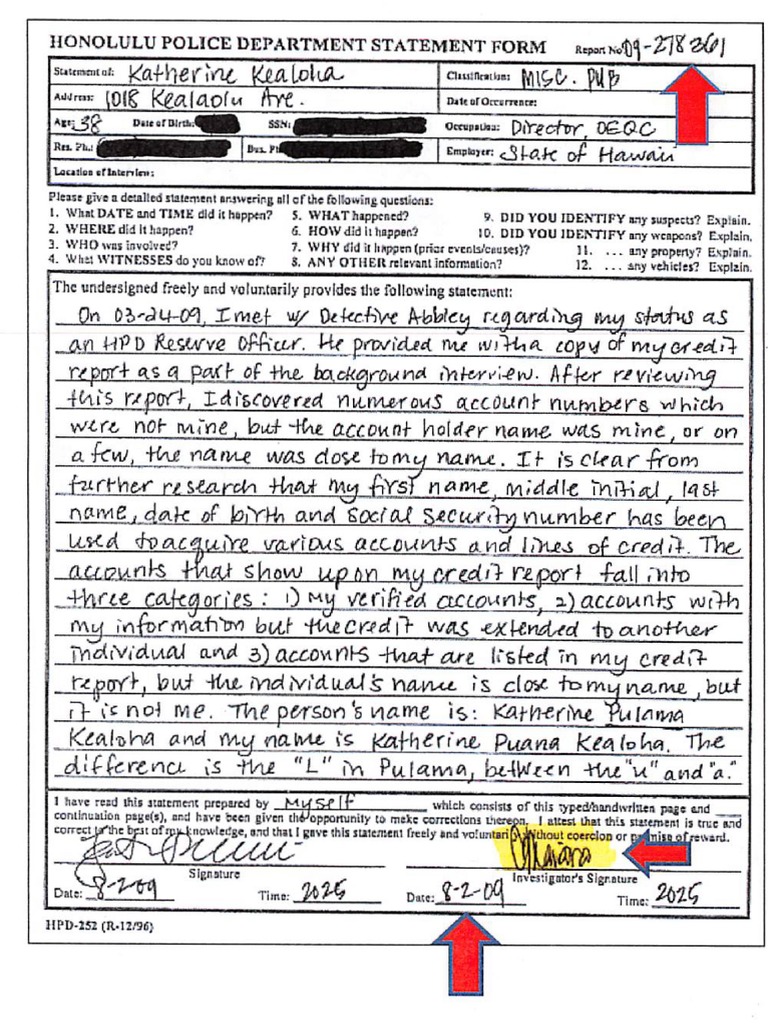 HONOLULU POLICE DEPARTMENT STATEMENT FORM Report No 09-278361
Statement of: Katherine Kealoha Classification: MISC. PUB
Address: 1018 Kealaolu Ave. Date of Occurrence:
Age: 38 Date of Birth: SSN: Occupation: Director, OEQC
Res. Ph.: Bus. Ph Employer: State of Hawaii
Location of Interview:
Please give a detailed statement answering all of the following questions:
1. What DATE and TIME did it happen? 5. WHAT happened? 9. DID YOU IDENTIFY any suspects? Explain.
2. WHERE did it happen? 6. HOW did it happen? 10. DID YOU IDENTIFY any weapons? Explain.
3. WHO was involved? 7. WHY did it happen (prior events/causes)? 11. ... any property? Explain.
4. What WITNESSES do you know of? 8. ANY OTHER relevant information? 12. ... any vehicles? Explain.
The undersigned freely and voluntarily provides the following statement:
On 03-24-09, I met w/ Detective Abbley regarding my status as
an HPD Reserve Officer. He provided me with a copy of my credit
report as a part of the background interview. After reviewing
this report, I discovered numerous account numbers which
were not mine, but the account holder name was mine, or on
a few, the name was close to my name. It is clear from
further research that my first name, middle initial, last
name, date of birth and social security number has been
used to acquire various accounts and lines of credit. The
accounts that show up on my credit report fall into
three categories: 1) My verified accounts, 2) accounts with
my information but the credit was extended to another
individual and 3) accounts that are listed in my credit
report, but the individual's name is close to my name, but
it is not me. The person's name is: Katherine Pulama
Kealoha and my name is Katherine Puana Kealoha. The
difference is the "L" in Pulama, between the "u" and "a."
I have read this statement prepared by Myself which consists of this typed/handwritten page and
continuation page(s), and have been given the opportunity to make corrections thereon. I attest that this statement is true and
correct to the best of my knowledge, and that I gave this statement freely and voluntarily without coercion or promise of reward.
Signature Investigator's Signature
Date: 8-2-09 Time: 2025 Date: 8-2-09 Time: 2025
HPD-252 (R-12/96)